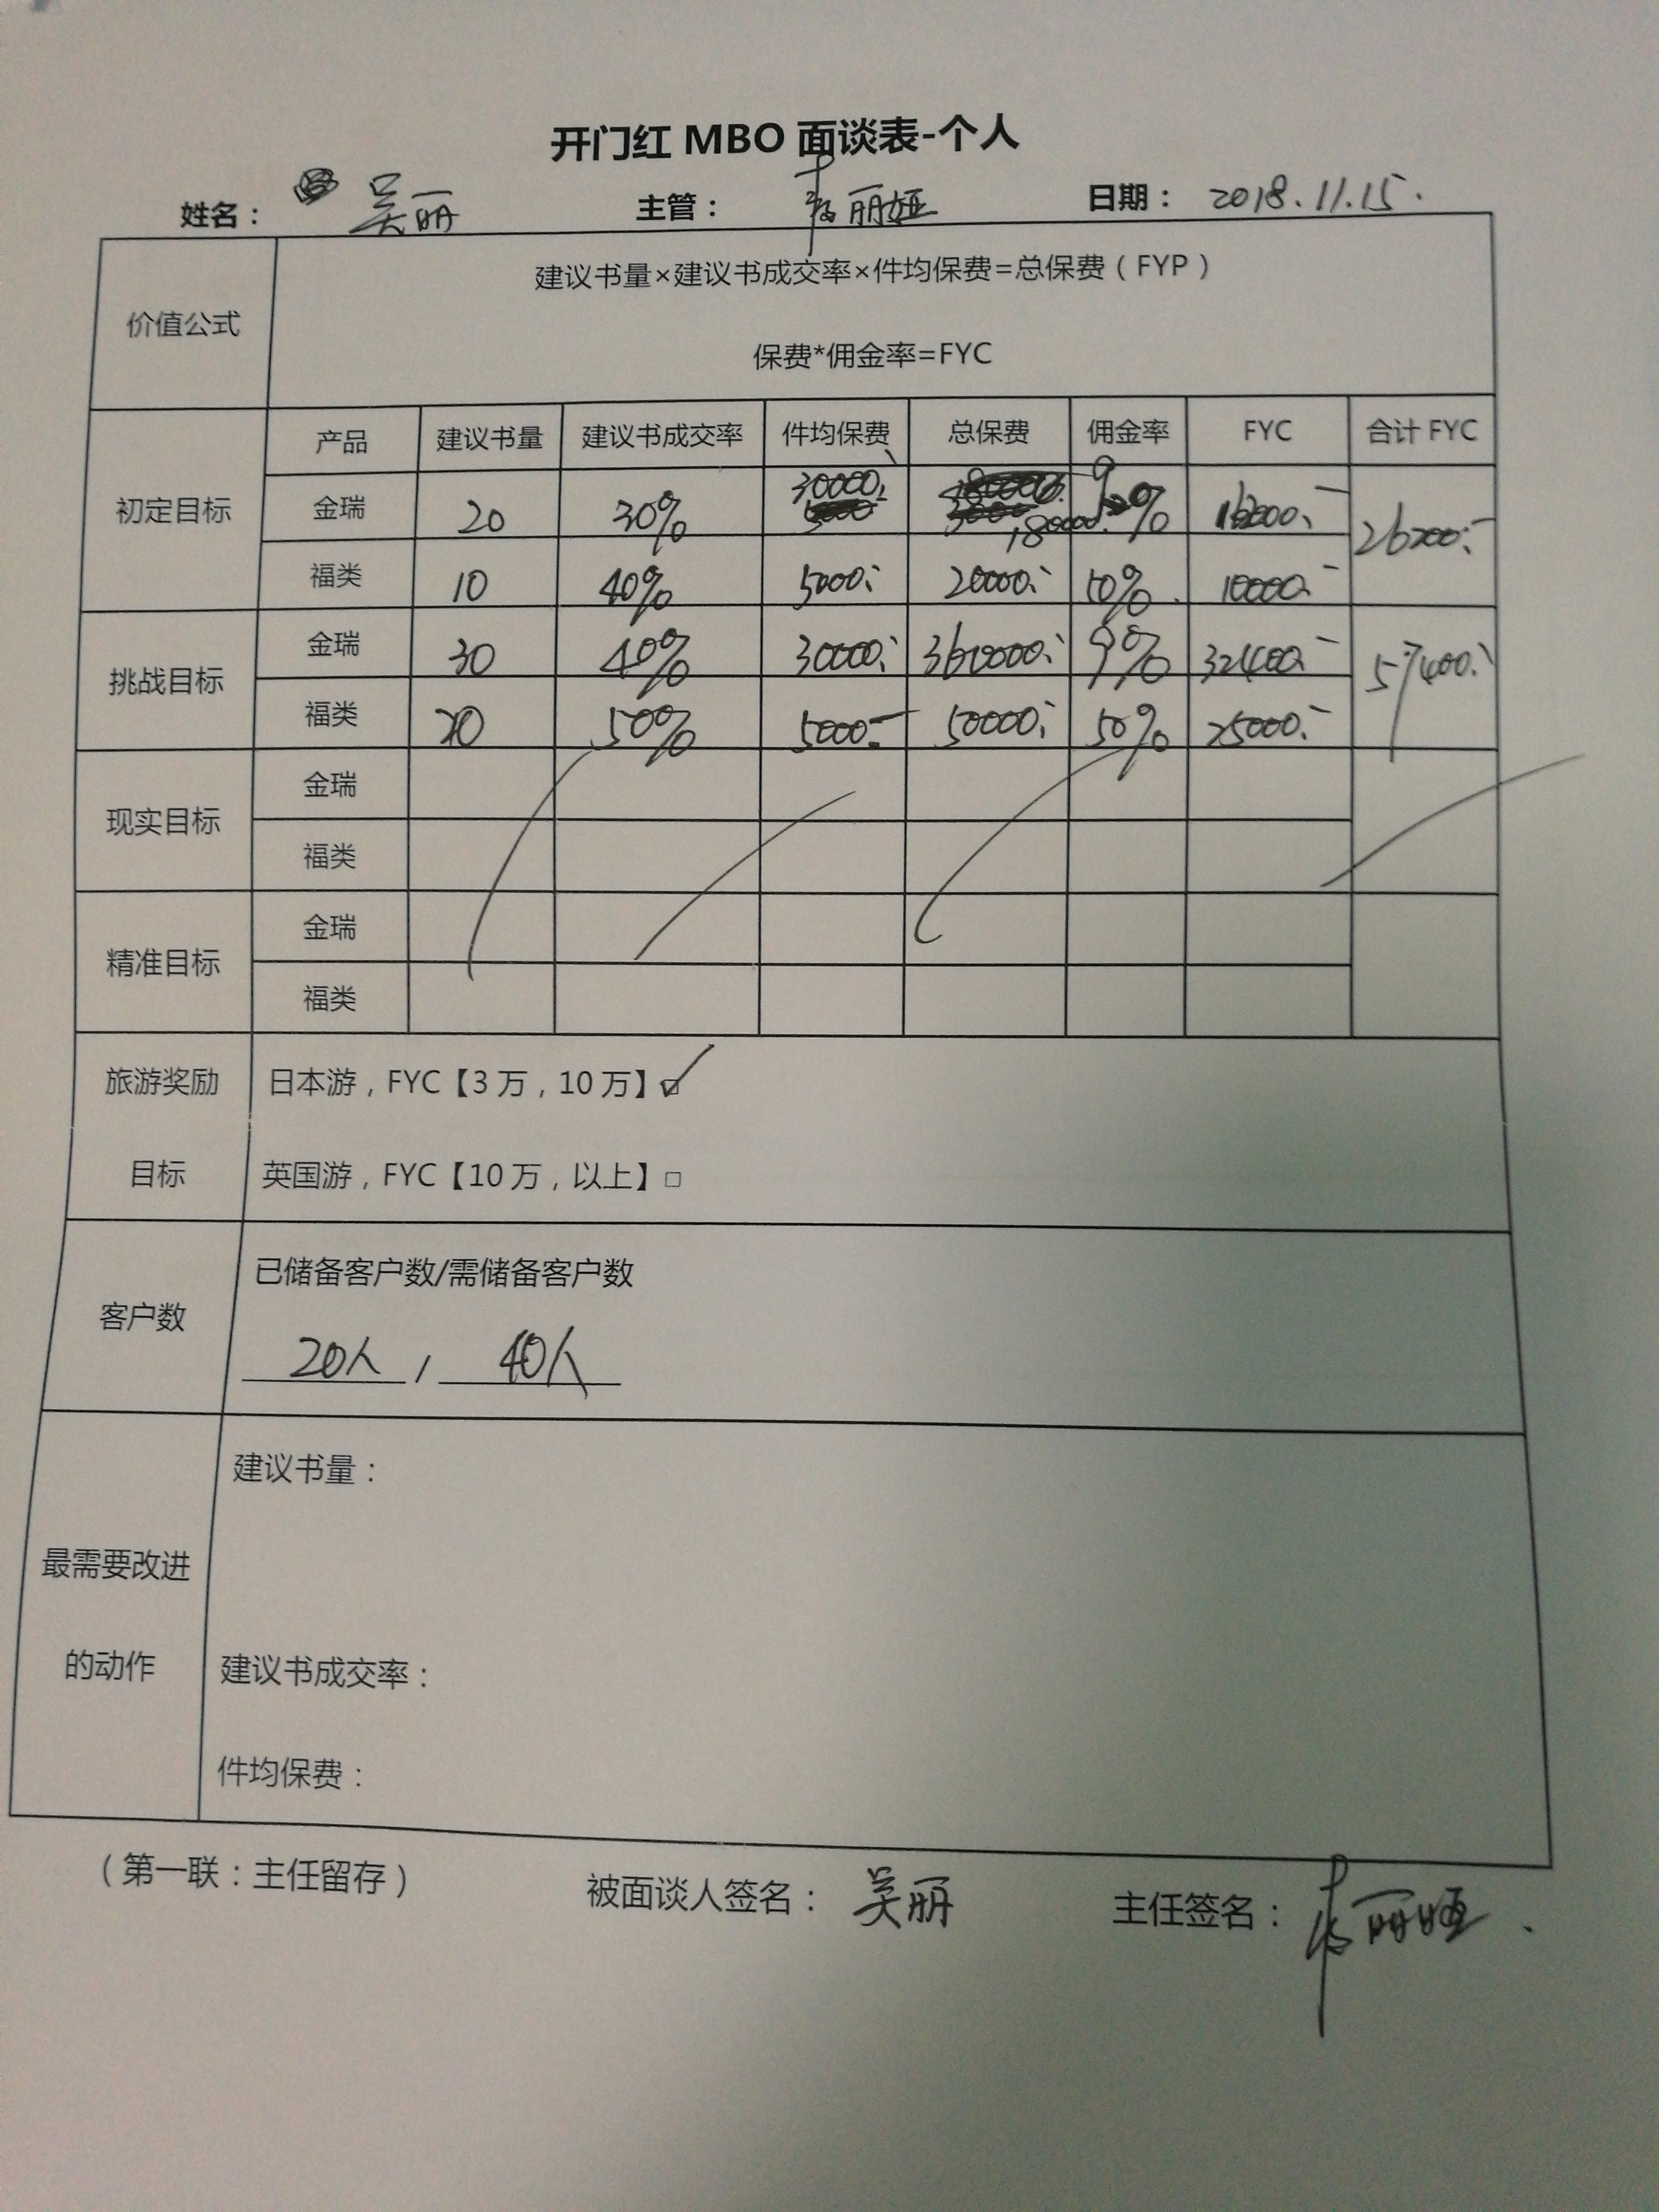 开门红 MBO 面谈表-个人
姓名： 吴丽 主管： 丽娅 日期： 2018.11.15.
价值公式
建议书量×建议书成交率×件均保费=总保费（FYP）
保费*佣金率=FYC
产品 建议书量 建议书成交率 件均保费 总保费 佣金率 FYC 合计 FYC
初定目标
金瑞 20 30% 30000. 180000. 9% 16200.-
26200.-
福类 10 40% 5000.- 20000.- 50% 10000.-
挑战目标
金瑞 30 40% 30000.- 360000.- 9% 32400.-
57400.-
福类 20 50% 5000.- 50000.- 50% 25000.-
现实目标
金瑞
福类
精准目标
金瑞
福类
旅游奖励
目标
日本游，FYC【3 万，10 万】☑
英国游，FYC【10 万，以上】□
客户数
已储备客户数/需储备客户数
20人 / 40人
最需要改进
的动作
建议书量：
建议书成交率：
件均保费：
（第一联：主任留存） 被面谈人签名： 吴丽 主任签名： 丽娅